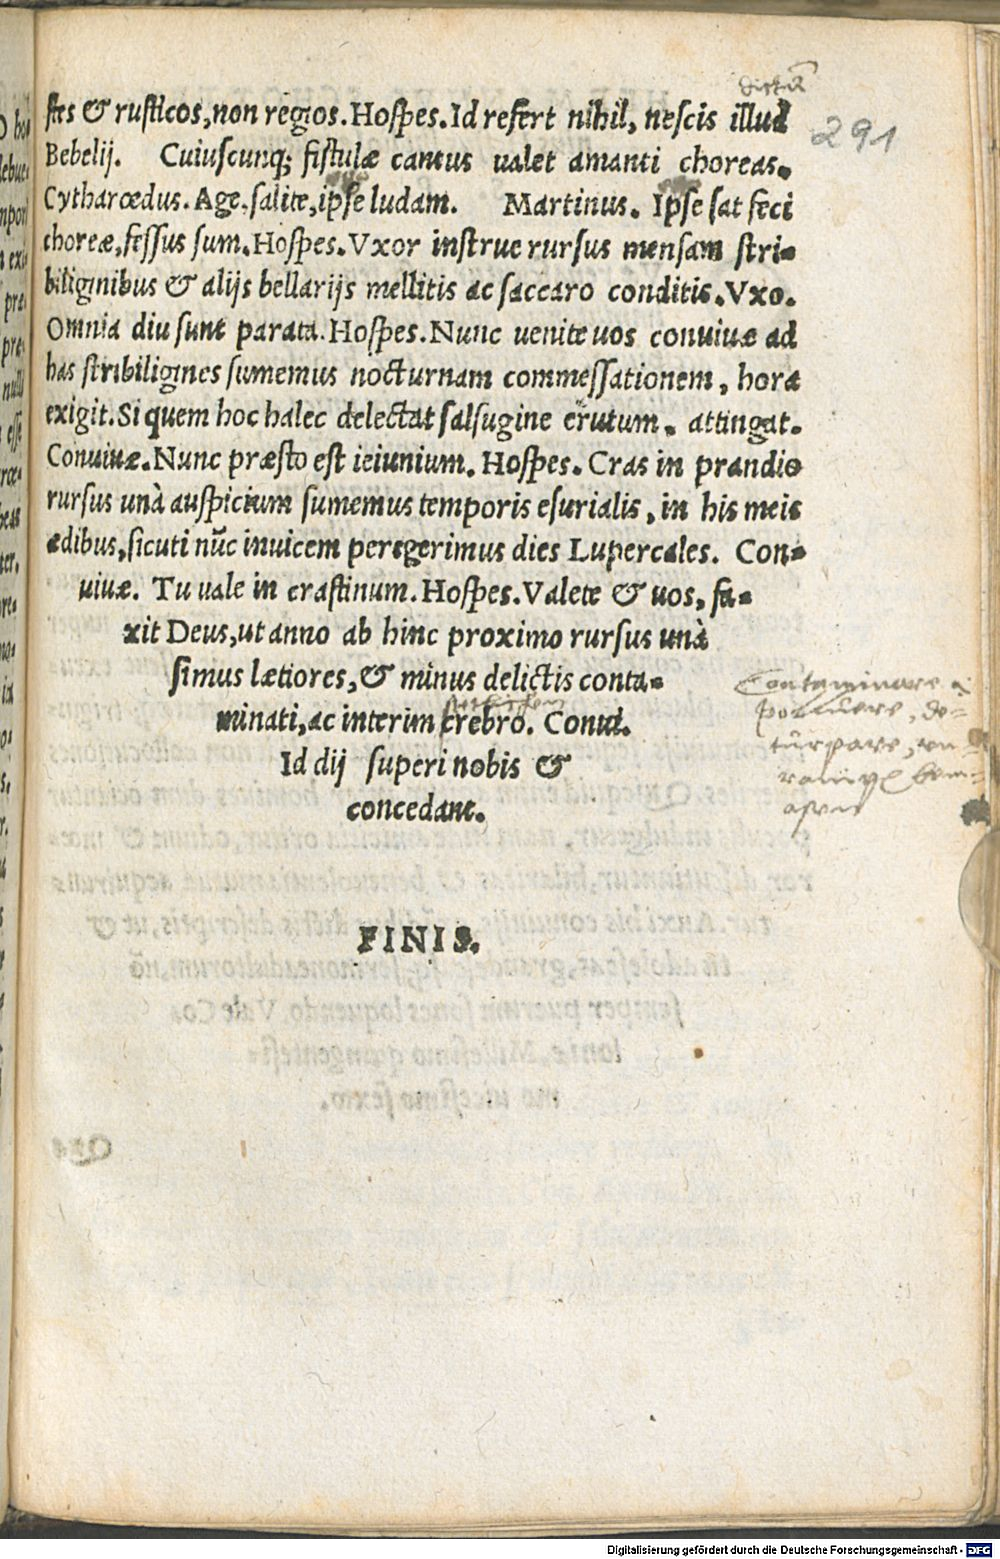 dictũ
ſtes & ruſticos, non regios. Hoſpes. Id refert nihil, neſcis illud
291
Bebelij. Cuiuſcunq; fiſtulæ cantus ualet amanti choreas.
Cytharœdus. Age, ſalite, ipſe ludam. Martinus. Ipſe ſat feci
choreæ, feſſus ſum. Hoſpes. Vxor inſtrue rurſus menſam ſtri-
biliginibus & alijs bellarijs mellitis ac ſaccaro conditis. Vxo.
Omnia diu ſunt parata. Hoſpes. Nunc uenite uos conuiuæ ad
has ſtribiligines ſumemus nocturnam commeſſationem, hora
exigit. Si quem hoc halec delectat ſalſugine erutum, attingat.
Conuiuæ. Nunc præſto eſt ieiunium. Hoſpes. Cras in prandio
rurſus unà auſpicium ſumemus temporis eſurialis, in his meis
ædibus, ſicuti nũc inuicem peregerimus dies Lupercales. Con-
uiuæ. Tu uale in craſtinum. Hoſpes. Valete & uos, fa-
xit Deus, ut anno ab hinc proximo rurſus unà
ſimus lætiores, & minus delictis conta-
minati, ac interim crebro. Conui.
Id dij ſuperi nobis &
concedant.
Contaminare
polluere, de-
turpare,
FINIS.
Digitalisierung gefördert durch die Deutsche Forschungsgemeinschaft - DFG